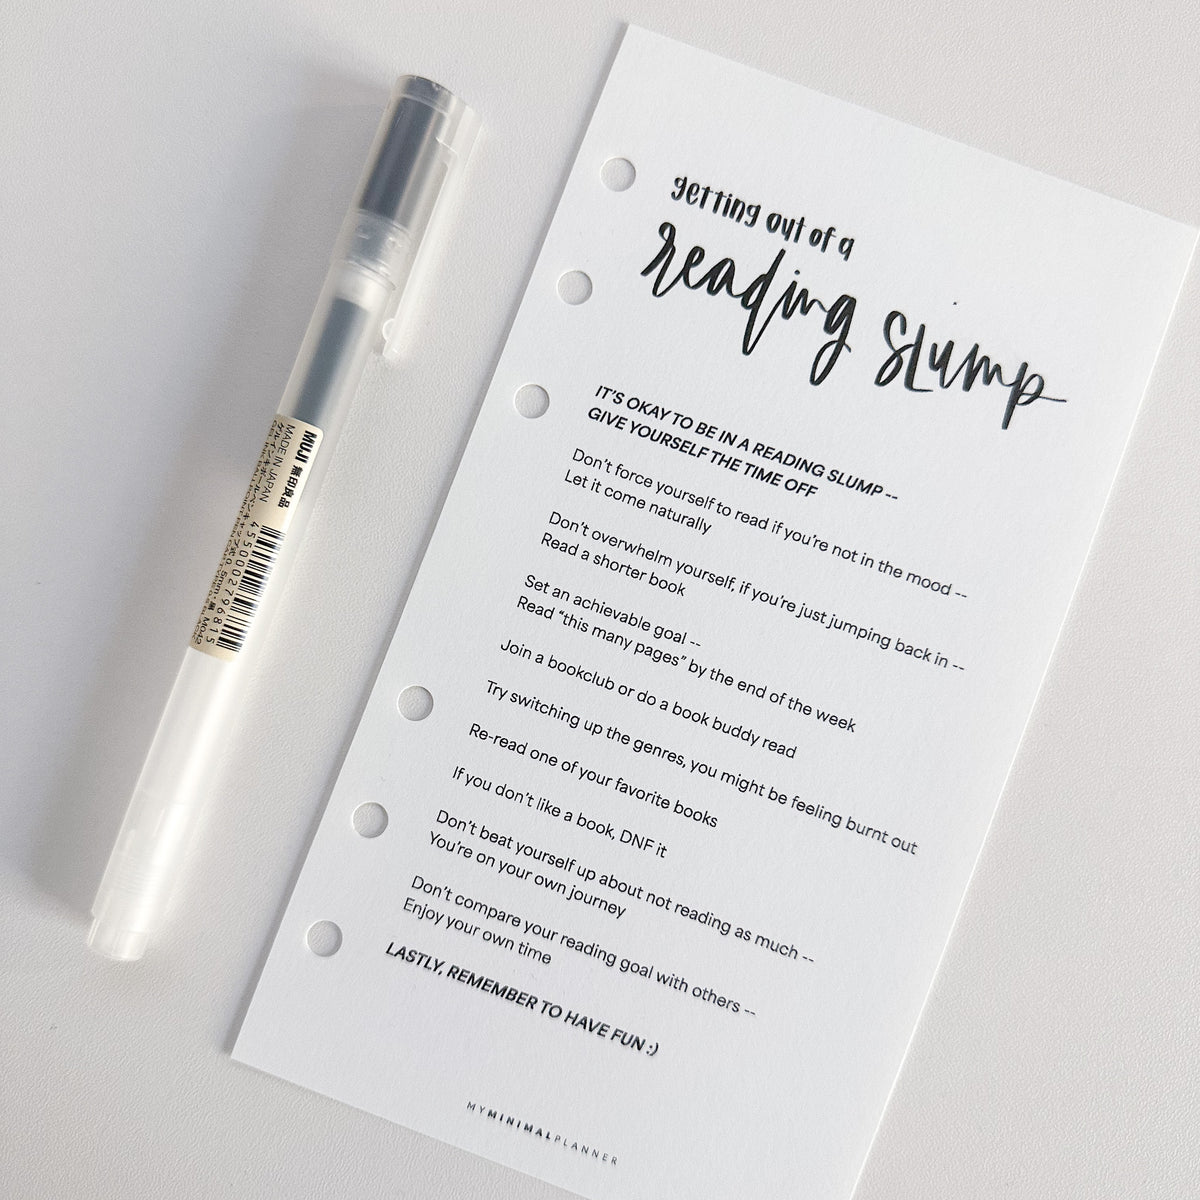 getting out of a
reading slump
IT'S OKAY TO BE IN A READING SLUMP --
GIVE YOURSELF THE TIME OFF
Don't force yourself to read if you're not in the mood --
Let it come naturally
Don't overwhelm yourself, if you're just jumping back in --
Read a shorter book
Set an achievable goal --
Read "this many pages" by the end of the week
Join a bookclub or do a book buddy read
Try switching up the genres, you might be feeling burnt out
Re-read one of your favorite books
If you don't like a book, DNF it
Don't beat yourself up about not reading as much --
You're on your own journey
Don't compare your reading goal with others --
Enjoy your own time
LASTLY, REMEMBER TO HAVE FUN :)
MYMINIMALPLANNER
MUJI 無印良品
MADE IN JAPAN
4550002796815